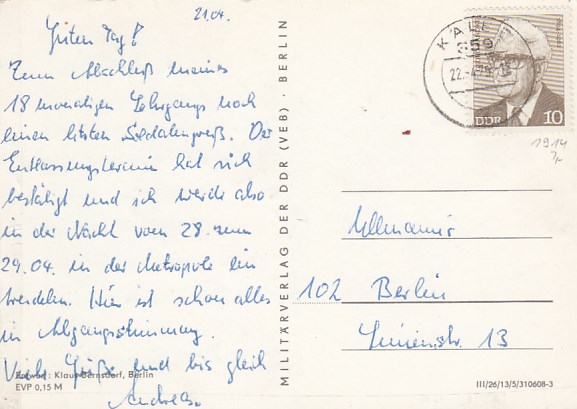 21.04.
Guten Tag!
Zum Abschluß meines
18 monatigen Lehrgangs noch
einen letzten Soldatengruß. Der
Entlassungstermin hat sich
bestätigt und ich werde also
in der Nacht vom 28. zum
29.04. in der Metropole ein
trudeln. Hier ist schon alles
in Abgangsstimmung.
Viele Grüße und bis gleich
Andreas
Entwurf: Klaus Bernsdorf, Berlin
EVP 0,15 M
MILITÄRVERLAG DER DDR (VEB) · BERLIN
22.
DDR 10
1914
102 Berlin
Linienstr. 13
III/26/13/5/310608-3